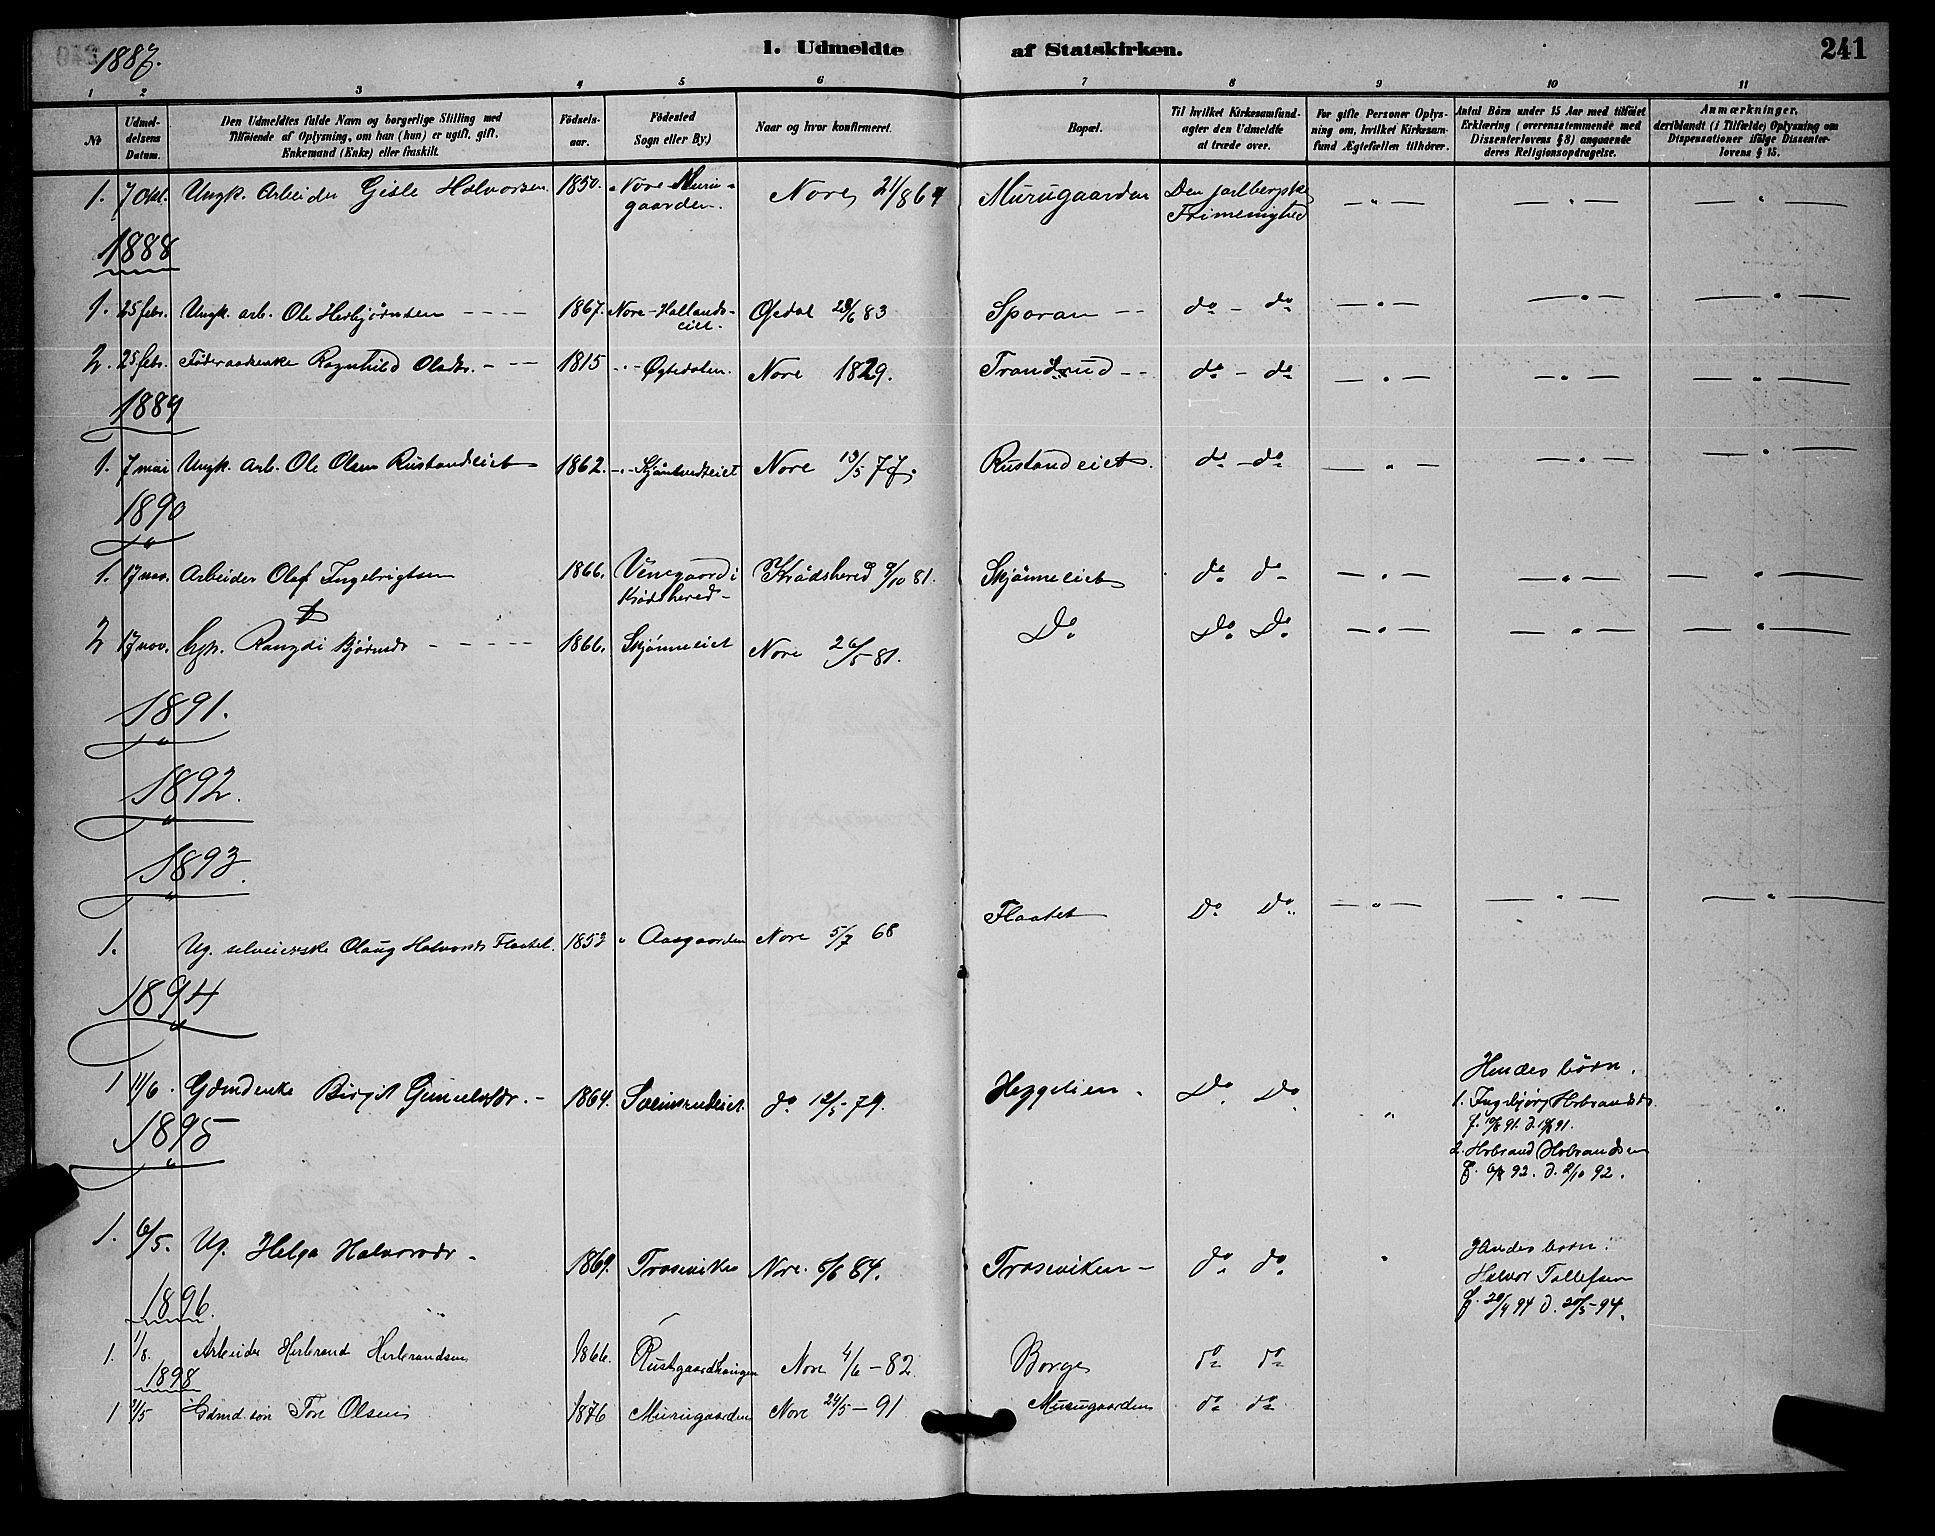 1887.
1. Udmeldte af Statskirken.
241
1 2 3 4 5 6 7 8 9 10 11
Nr
Udmeldelsens Datum.
Den Udmeldtes fulde Navn og borgerlige Stilling med
Tilföiende af Oplysning, om han (hun) er ugift, gift,
Enkemand (Enke) eller fraskilt.
Födselsaar.
Födested
Sogn eller By.)
Naar og hvor konfirmeret.
Bopæl.
Til hvilket Kirkesamfund
agter den Udmeldte
at træde over.
For gifte Personer Oplysning om, hvilket Kirkesamfund Ægtefællen tilhörer.
Antal Börn under 15 Aar med tilföiet
Erklæring (overensstemmende med
Dissenterlovens § 8) angaaende
deres Religionsopdragelse.
Anmærkninger,
deriblandt (i Tilfælde) Oplysning om
Dispensationer ifölge Dissenterlovens § 15.
1. 7 Okt. Ungk. Arbeider Gisle Halvorsen 1850. Nore Murugaarden. Nore 1864 Murugaarden Den jarlbergske Frimenighed — " — — " — "
1888
1. 25 febr. Ungk. arb. Ole Herbjørnsen - - - - 1867. Nore - Hallandseiet. 83 Sporan - - do - do — " — — " — — " —
2. 25 febr. Föderaadsenke Ragnhild Olsdtr. - - - 1815 - " - Nore 1829. Trandrud - - do - do — " — — " — — " —
1889
1. 7 mai Ungk. arb. Ole Olsen Rustandeiet 1862. - " - Nore 13/5 77. Rustandeiet. do - do — " — — " — — " —
1890
1. 17 nov. Arbeider Olaf Ingebrigtsen 1866. i Krødshered - Krödshered 9/10 81. Skjønneeiet do do — " — — " — — " —
2 17 nov. Rangdi Bjørnsdr - - - - 1866. Skjønneeiet Nore 26/5 81. Do Do Do — " — — " — — " —
1891.
1892.
1893.
1. Ug. selveierske Olaug Halvorsdr Flaatet. 1853 " Aasgaarden Nore 5/7 68 Flaatet Do Do — " — — " — — " —
1894
1 11/6. Gdmdenke Birgit Gunnulvsdr. - 1864. do 79. Heggelien. Do Do " Hendes børn. "
1. Ingebjørg
91. d. 91.
2. Herbrand Herbrandsen
f. 92. d. 2/10 92.
1895
1. 6/5. Ug. Helga Halvorsdr - 1869. Traseviken Nore. 84. Traseviken - do do " Hendes børn:
Halvor Tollefsen
f. 29/4 94 d. 20/5 - 94.
1896.
1. 1/8. Arbeider Herbrand Herbrandsen 1866. Rustgaardhaugen Nore 4/6 - 82 Borge do do
1898
1 Gdmd. søn Tor Olsen 1876 Murugaarden Nore 24/5 - 91 Murugaarden do do